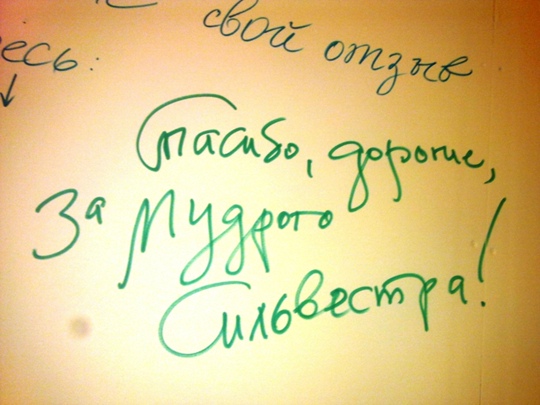 свой отзыв
есь:
Спасибо, дорогие,
за Мудрого
Сильвестра!